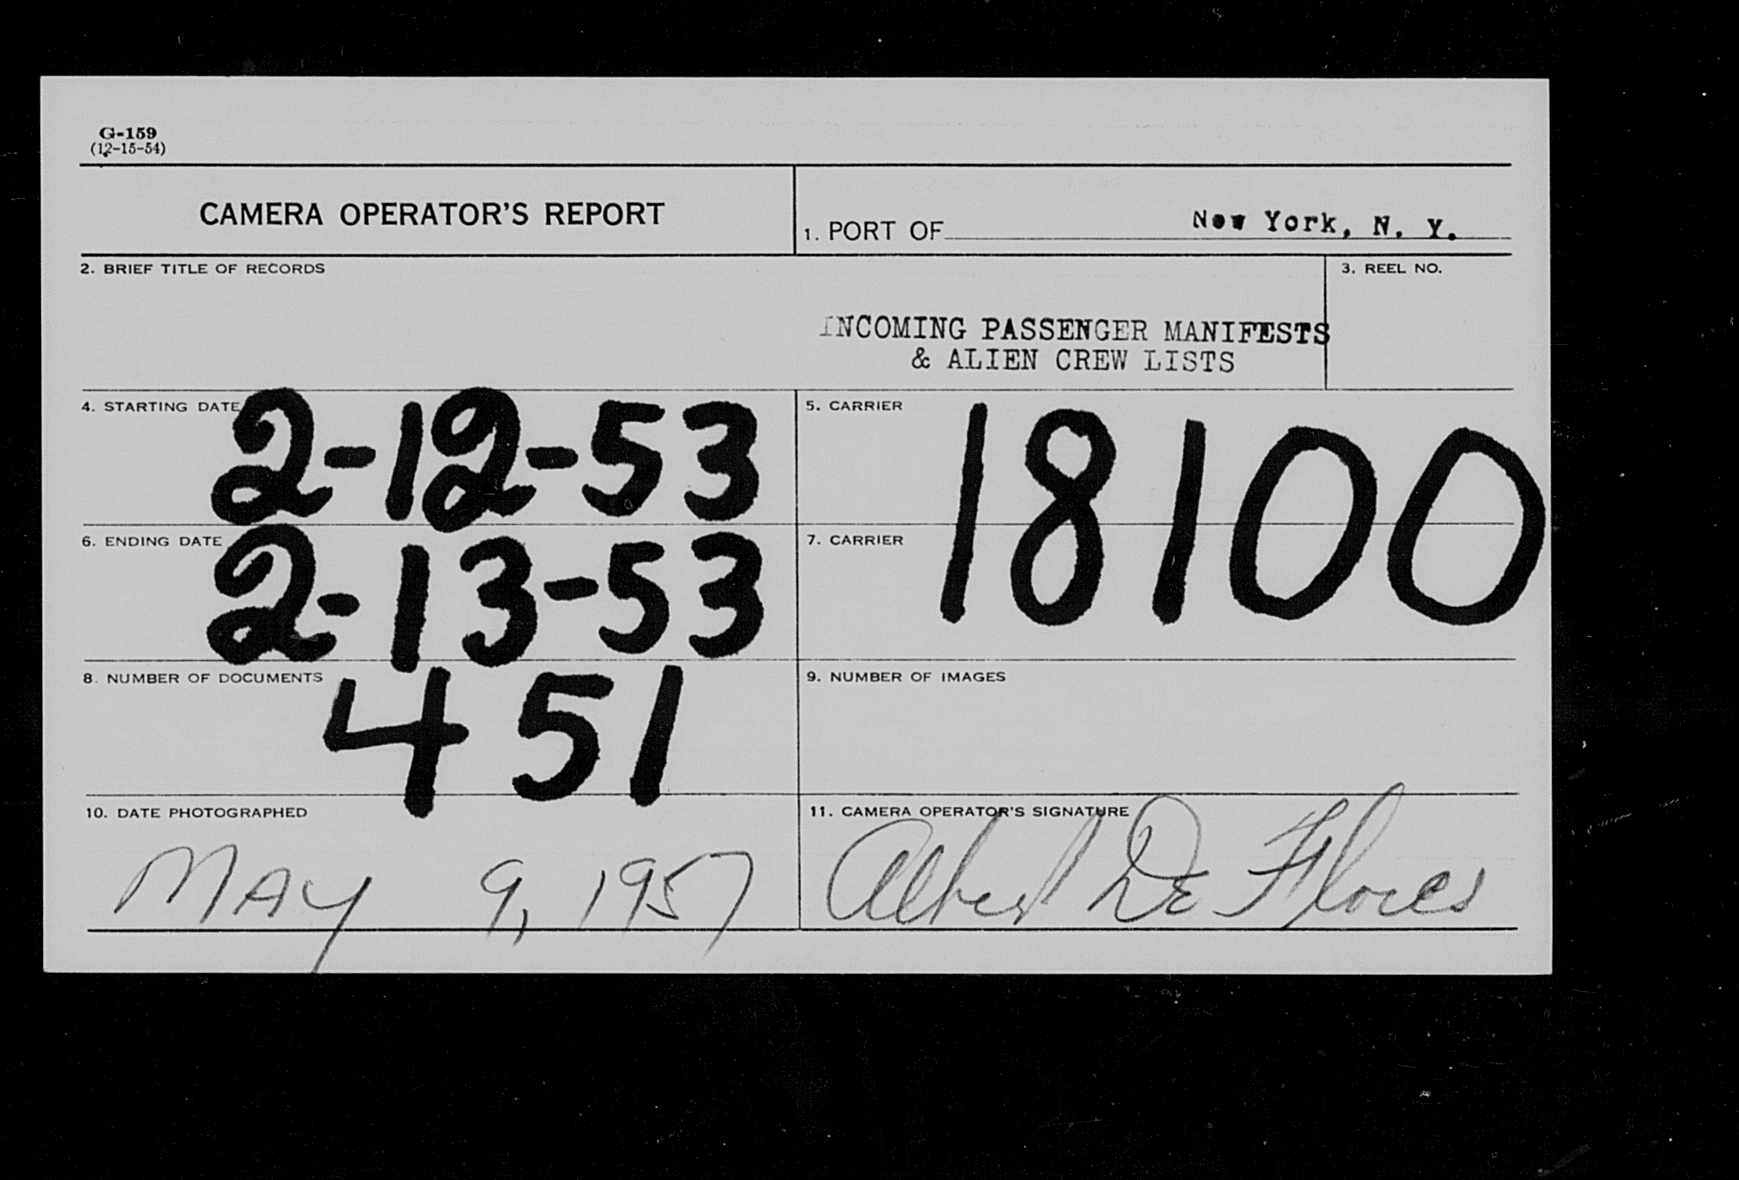 G-159
(12-15-54)
CAMERA OPERATOR'S REPORT
1. PORT OF New York, N. Y.
2. BRIEF TITLE OF RECORDS
INCOMING PASSENGER MANIFESTS
& ALIEN CREW LISTS
3. REEL NO.
4. STARTING DATE
2-12-53
5. CARRIER
18100
6. ENDING DATE
2-13-53
7. CARRIER
8. NUMBER OF DOCUMENTS
451
9. NUMBER OF IMAGES
10. DATE PHOTOGRAPHED
MAY 9, 1957
11. CAMERA OPERATOR'S SIGNATURE
Albert De Flores